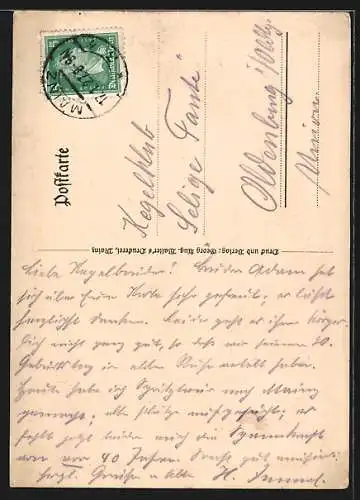 MAINZ
Postkarte
Kegelklub
"Selige Tante"
Oldenburg i/Oldbg.
Union
Druck und Verlag: Georg Aug. Walter's Druckerei, Mainz
Liebe Kegelbrüder! Bruder Adam hat
sich über Eure Karte sehr gefreut, er läßt
herzlichst danken. Leider geht es ihm körper-
lich nicht ganz gut, so daß wir seinen 80.
Geburtstag in aller Ruhe verlebt haben.
Heute habe ich Spritztour nach Mainz
gemacht, alte Plätze aufgesucht; es
fehlt jetzt leider auch die Spannkraft
wie vor 40 Jahren. Sonst gut
herzl. Grüßen a. Alle H.